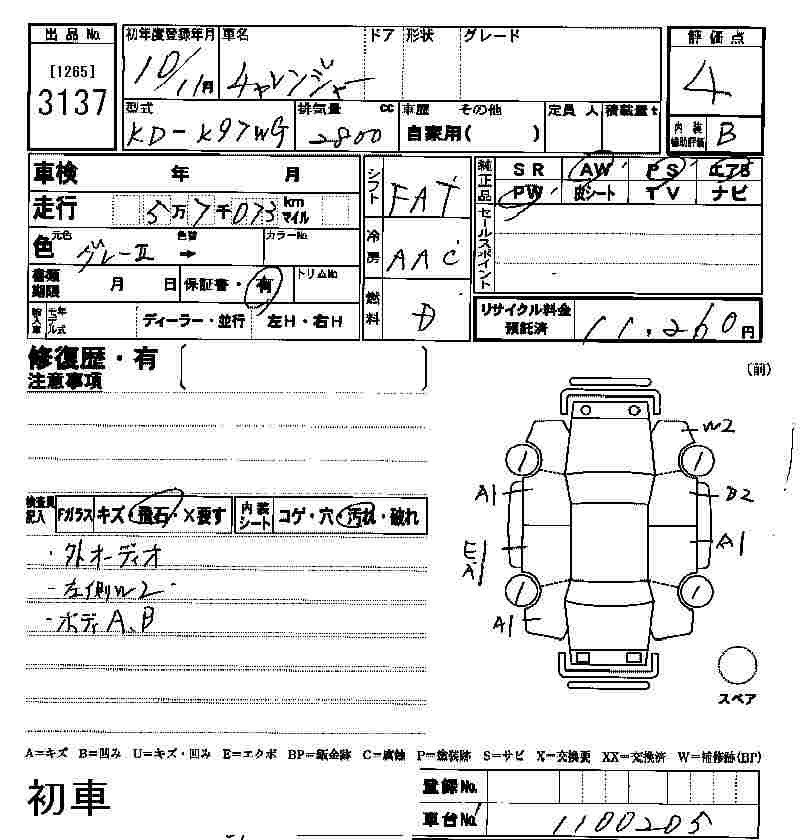 出品No.
[1265]
3137
初年度登録年月 車名 ドア 形状 グレード
10/11月 チャレンジャー
型式 排気量 cc 車歴 その他 定員 人 積載量 t
KD-K97WG 2800 自家用( )
評価点
4
内装 補助評価 B
車検 年 月
走行 5万7千073 km マイル
色 元色 グレーII 色替 → カラーNo.
書類期限 月 日 保証書・有 トリムNo.
輸入車 モデル年式 ディーラー・並行 左H・右H
シフト FAT
冷房 AAC
燃料 D
純正品 SR AW PS エアB
PW 皮シート TV ナビ
セールスポイント
リサイクル料金 預託済 11,260円
修復歴・有
注意事項
(前)
W2
A1 B2
E A A1
A1
スペア
検査員記入 Fガラス キズ・飛石・X要す 内装シート コゲ・穴・汚れ・破れ
・外オーディオ
-左側W2
-ボディA、B
A=キズ B=凹み U=キズ・凹み E=エクボ BP=鈑金跡 C=腐蝕 P=塗装跡 S=サビ X=交換要 XX=交換済 W=補修跡(BP)
初車
登録No.
車台No. 1100205